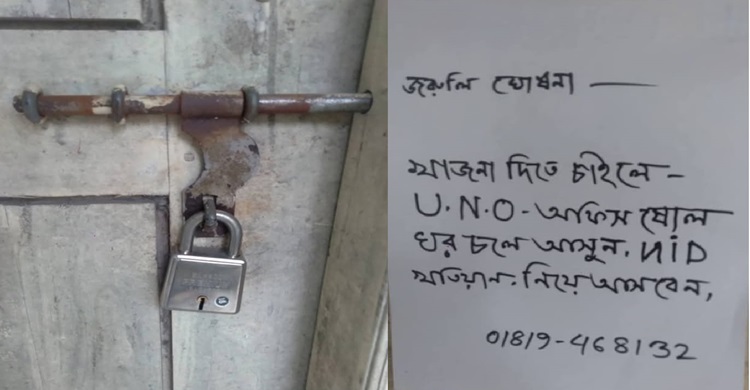 জরুলি ঘোষনা —
খাজনা দিতে চাইলে –
U.N.O - অফিস ষোল
ঘর চলে আসুন. NiD
খতিয়ান. নিয়ে আসবেন,
01819-468132